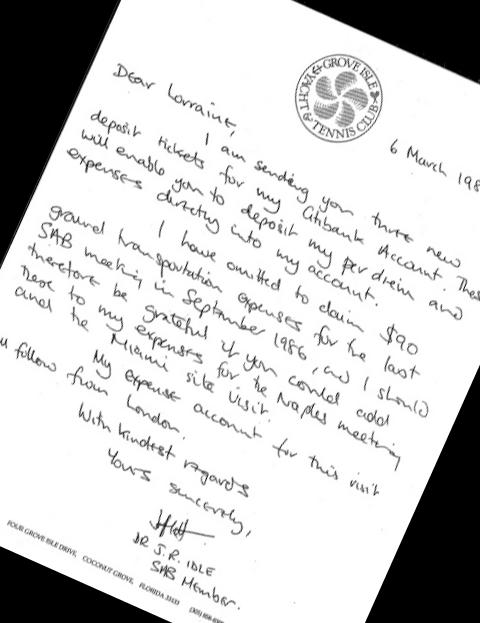 GROVE ISLE YACHT & TENNIS CLUB
6 March 198
Dear Lorraine,
I am sending you three new
deposit tickets for my Citibank Account. These
will enable you to deposit my per diem and
expenses directly into my account.
I have omitted to claim $90
ground transportation expenses for the last
SAB meeting in September 1986, and I should
therefore be grateful if you could add
these to my expenses for the Naples meeting
and the Miami site visit.
My expense account for this visit
follow from London.
With kindest regards
Yours sincerely,
DR J.R. IDLE
SAB Member.
FOUR GROVE ISLE DRIVE, COCONUT GROVE, FLORIDA 33133